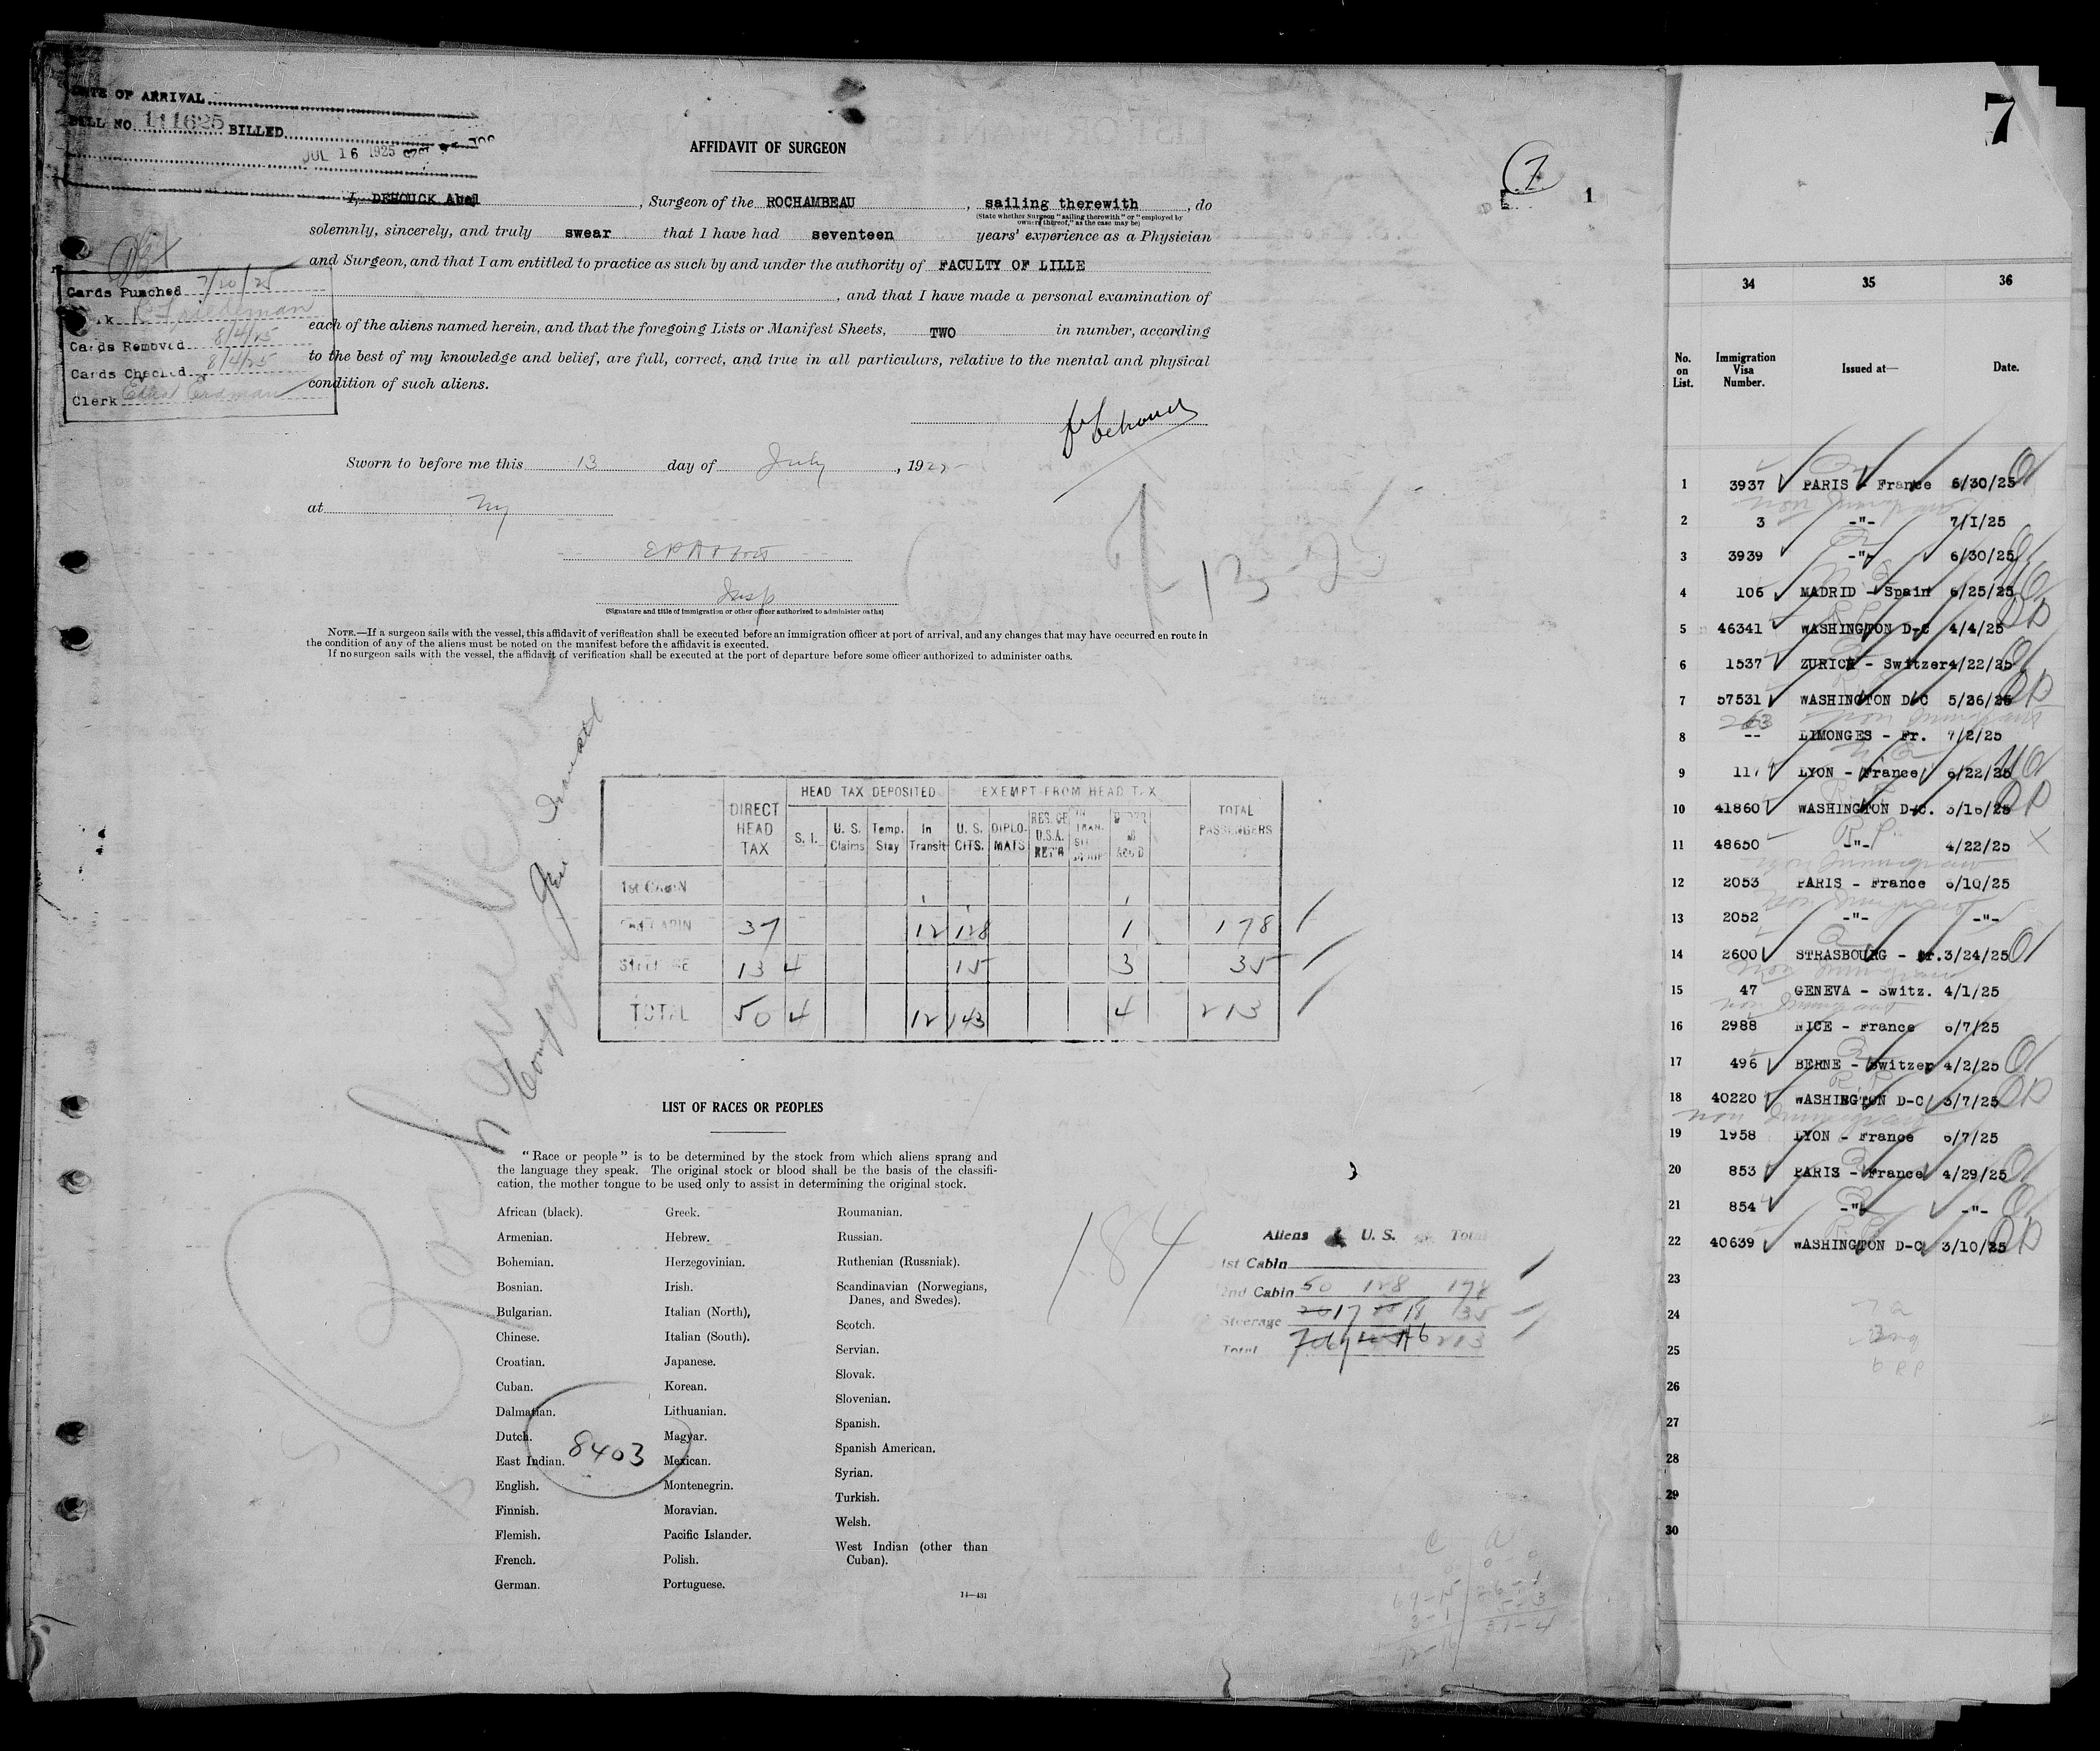 DATE OF ARRIVAL
BILL NO 111625 BILLED
JUL 16 1925
AFFIDAVIT OF SURGEON
7
1
7
I, DEHOUCK Abel, Surgeon of the ROCHAMBEAU, sailing therewith, do
(State whether Surgeon "sailing therewith" or "employed by owners thereof," as the case may be)
solemnly, sincerely, and truly swear that I have had seventeen years' experience as a Physician
and Surgeon, and that I am entitled to practice as such by and under the authority of FACULTY OF LILLE
, and that I have made a personal examination of
each of the aliens named herein, and that the foregoing Lists or Manifest Sheets, TWO in number, according
to the best of my knowledge and belief, are full, correct, and true in all particulars, relative to the mental and physical
condition of such aliens.
Cards Punched 7/20/25
Cards Removed 8/4/25
Cards Checked 8/4/25
Clerk
Sworn to before me this 13 day of July, 1925
at NY
Insp
(Signature and title of immigration or other officer authorized to administer oaths)
NOTE.—If a surgeon sails with the vessel, this affidavit of verification shall be executed before an immigration officer at port of arrival, and any changes that may have occurred en route in
the condition of any of the aliens must be noted on the manifest before the affidavit is executed.
If no surgeon sails with the vessel, the affidavit of verification shall be executed at the port of departure before some officer authorized to administer oaths.
7-13-25
Rochambeau
DIRECT HEAD TAX
HEAD TAX DEPOSITED
EXEMPT FROM HEAD TAX
TOTAL PASSENGERS
S. I. U. S. Claims Temp. Stay In Transit U. S. CITS. DIPLOMATS
1st CABIN
2nd CABIN 37 12 128 1 178
STEERAGE 13 4 15 3 35
TOTAL 50 4 12 143 4 213
LIST OF RACES OR PEOPLES
"Race or people" is to be determined by the stock from which aliens sprang and
the language they speak. The original stock or blood shall be the basis of the classifi-
cation, the mother tongue to be used only to assist in determining the original stock.
African (black).
Armenian.
Bohemian.
Bosnian.
Bulgarian.
Chinese.
Croatian.
Cuban.
Dalmatian.
Dutch.
East Indian.
English.
Finnish.
Flemish.
French.
German.
Greek.
Hebrew.
Herzegovinian.
Irish.
Italian (North),
Italian (South).
Japanese.
Korean.
Lithuanian.
Magyar.
Mexican.
Montenegrin.
Moravian.
Pacific Islander.
Polish.
Portuguese.
Roumanian.
Russian.
Ruthenian (Russniak).
Scandinavian (Norwegians,
Danes, and Swedes).
Scotch.
Servian.
Slovak.
Slovenian.
Spanish.
Spanish American.
Syrian.
Turkish.
Welsh.
West Indian (other than
Cuban).
14—431
8403
184
Aliens U. S. Total
1st Cabin
2nd Cabin 50 128 178
Steerage 17 18 35
Total 213
34 35 36
No. on List. Immigration Visa Number. Issued at— Date.
1 3937 PARIS - France 6/30/25
2 3 -"- 7/1/25
3 3939 -"- 6/30/25
4 106 MADRID - Spain 6/25/25
5 46341 WASHINGTON D-C 4/4/25
6 1537 ZURICH - Switzer 4/22/25
7 57531 WASHINGTON D-C 5/26/25
8 -- LIMONGES - Fr. 7/2/25
263
9 117 LYON - France 6/22/25
10 41860 WASHINGTON D-C. 3/16/25
11 48650 -"- 4/22/25
12 2053 PARIS - France 6/10/25
13 2052 -"- -"-
14 2600 STRASBOURG - Fr. 3/24/25
15 47 GENEVA - Switz. 4/1/25
16 2988 NICE - France 6/7/25
17 496 BERNE - Switzer 4/2/25
18 40220 WASHINGTON D-C 3/7/25
19 1958 LYON - France 6/7/25
20 853 PARIS - France 4/29/25
21 854 -"- -"-
22 40639 WASHINGTON D-C 3/10/25
23
24
25
26
27
28
29
30